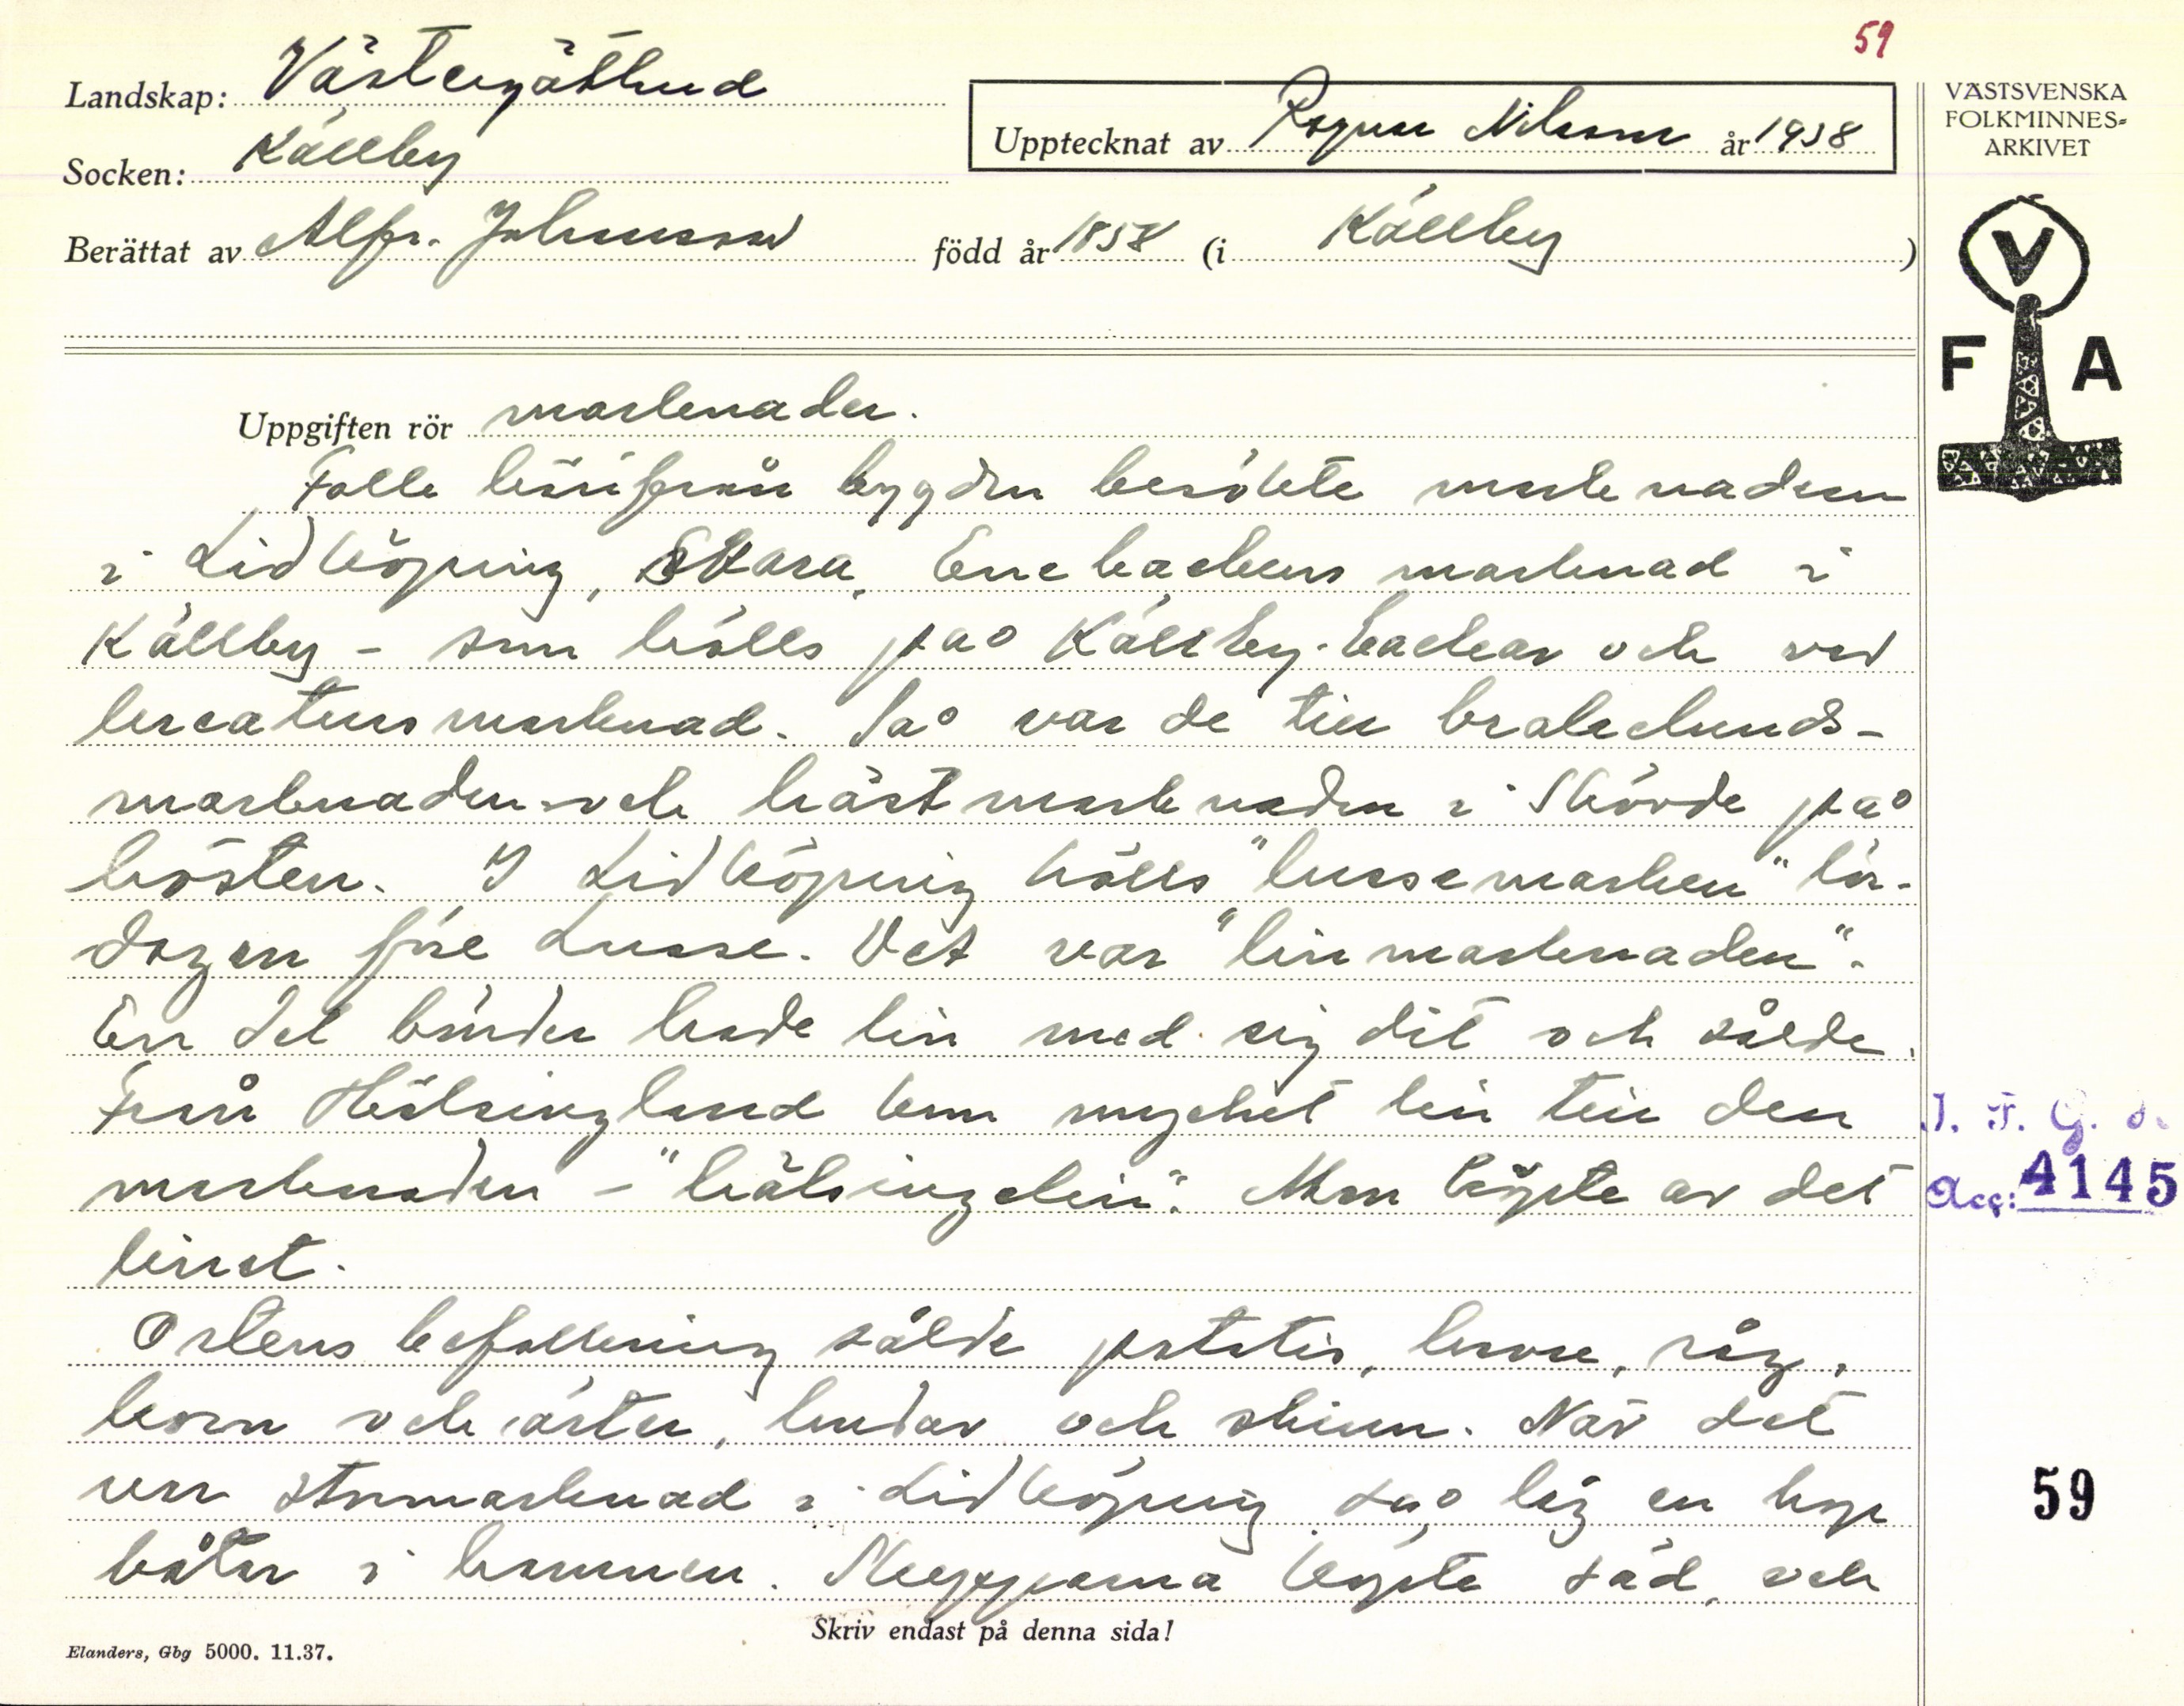 59
Landskap: Västergötland
Socken: Källby
Upptecknat av Ragnar Nilsson år 1938
VÄSTSVENSKA
FOLKMINNES-
ARKIVET
Berättat av Alfr. Johansson född år 1858 (i Källby)
V
F A
Uppgiften rör marknader.
Folk härifrån bygden besökte marknaden
i Lidköping, Skara, Enebackens marknad i
Källby - som hölls på Källby-backar och vid
marknad. Så var de till
marknaden och höstmarknaden i Skövde på
hösten. I Lidköping hölls "lussemarken" lör-
dagen före Lusse. Det var "linmarknaden".
En del bönder hade lin med sig dit och sålde.
Från Hälsingland kom mycket lin till den
marknaden - "hälsingelin". Man köpte av det
linet.
Ortens befolkning sålde potatis, havre, råg,
korn och ärter, hudar och skinn. När det
var stormarknad i Lidköping, låg en hop
båtar i hamnen. Skepparna köpte säd, och
J. F. G. s.
Acc: 4145
59
Skriv endast på denna sida!
Elanders, Gbg 5000. 11.37.